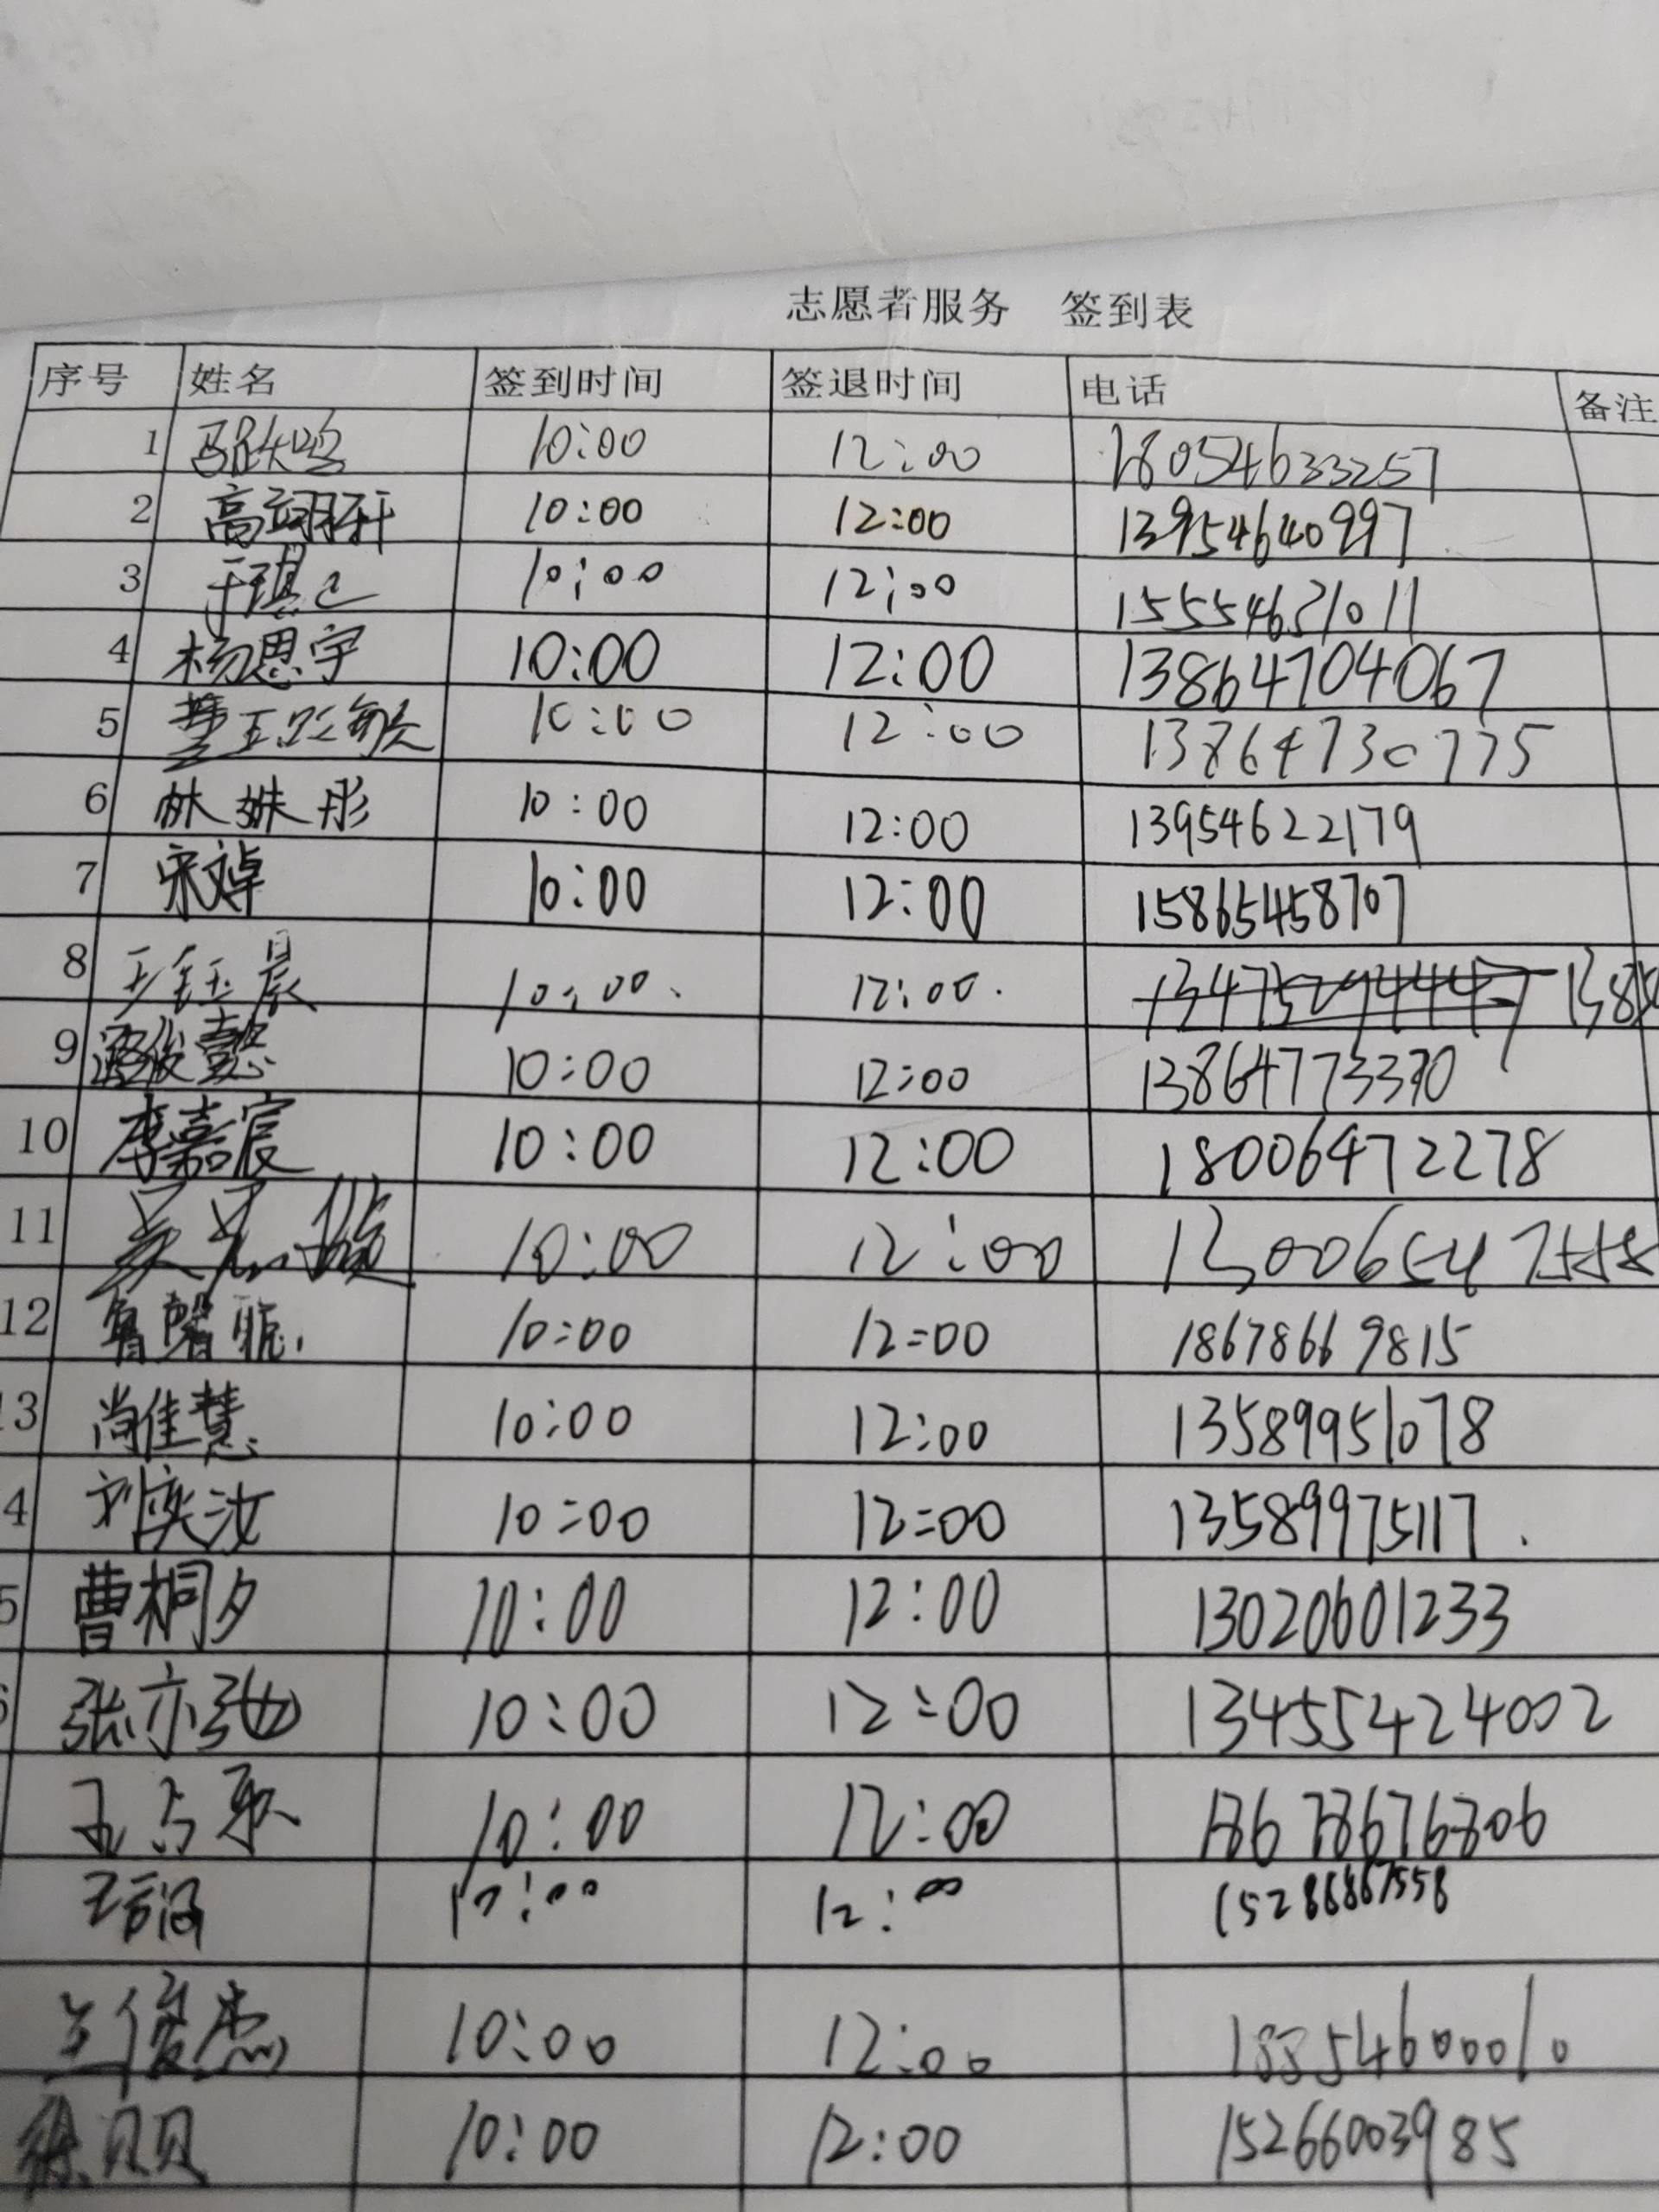 志愿者服务 签到表
序号 姓名 签到时间 签退时间 电话 备注
1 10:00 12:00 18054633257
2 高翊轩 10:00 12:00 13954640997
3 10:00 12:00 15554631011
4 杨思宇 10:00 12:00 13864704067
5 10:00 12:00 13864730775
6 林姝彤 10:00 12:00 13954622179
7 宋文婥 10:00 12:00 15865458707
8 王钰晨 10:00. 12:00.
9 俊懿 10:00 12:00 13864773370
10 李嘉宸 10:00 12:00 18006472278
11 10:00 12:00
12 10:00 12:00 18678669815
13 尚佳慧 10:00 12:00 13589951078
4 刘奕汝 10:00 12:00 13589975117.
5 曹桐夕 10:00 12:00 13020601233
张亦弛 10:00 12:00 13455424002
10:00 12:00 18678676806
10:00 12:00 15286867558
兰俊杰 10:00 12:00 18854600010
徐贝贝 10:00 12:00 15266003985